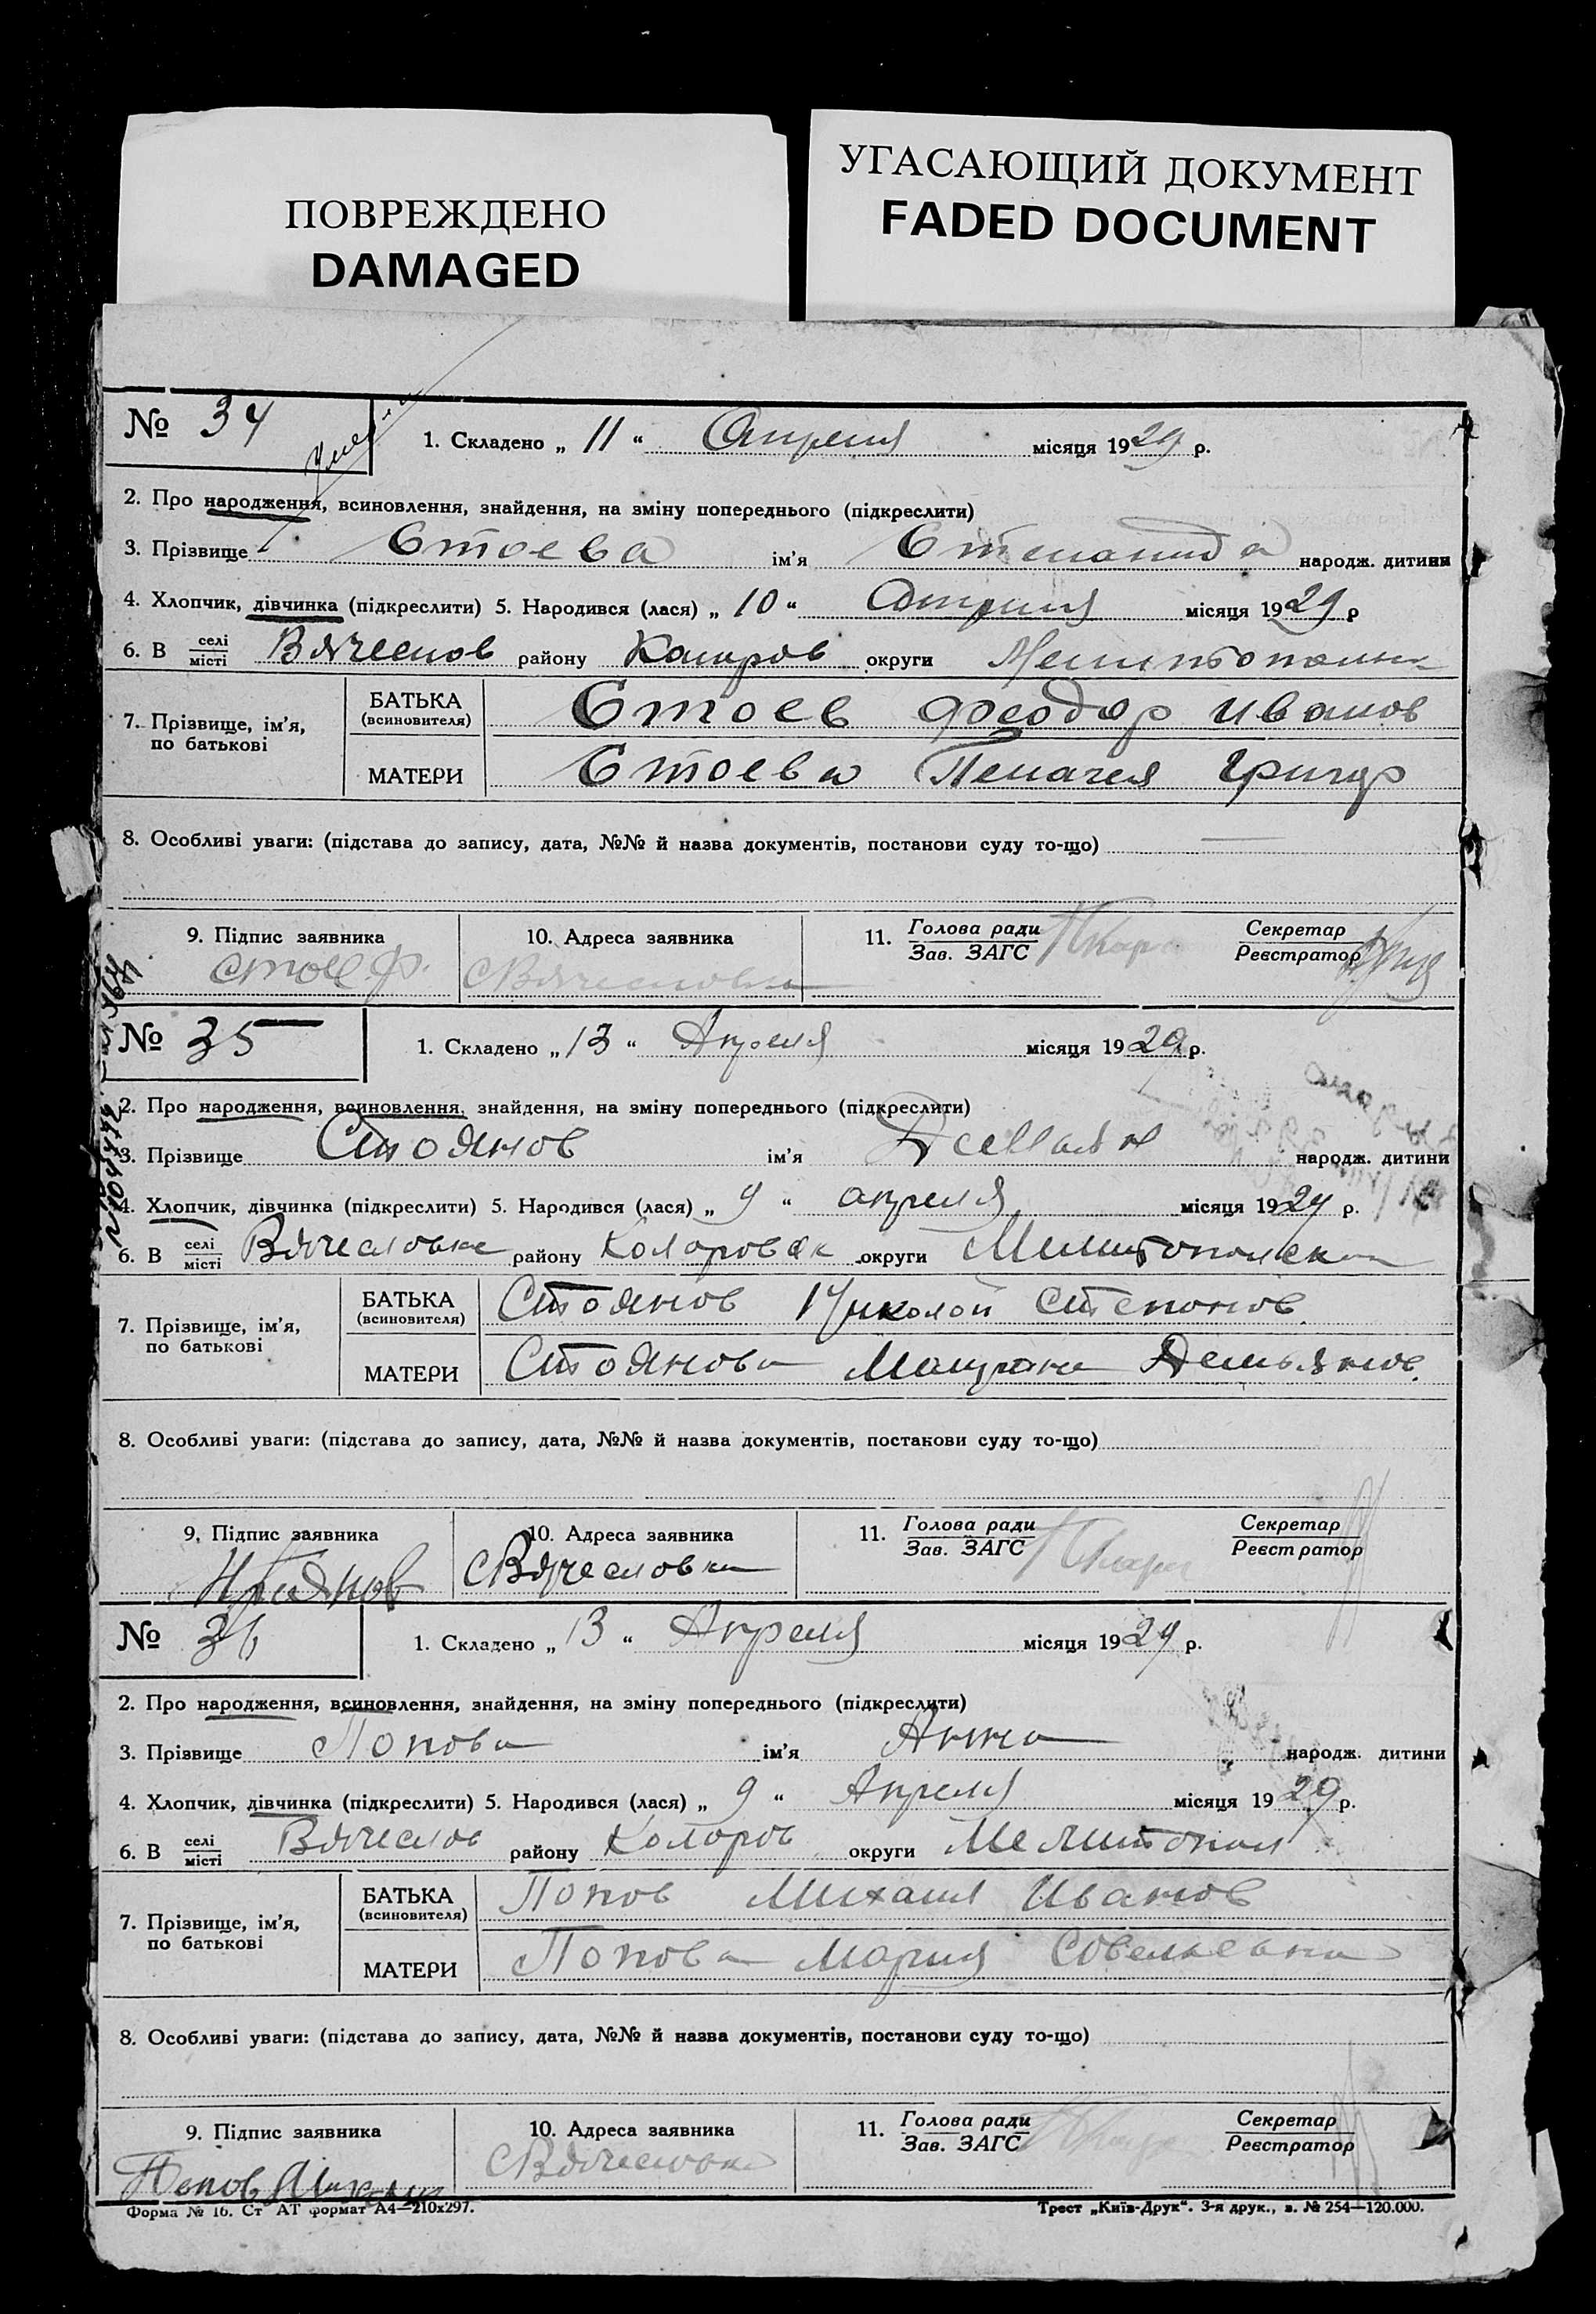 ПОВРЕЖДЕНО
DAMAGED
УГАСАЮЩИЙ ДОКУМЕНТ
FADED DOCUMENT
№ 34
1. Складено „ 11 “ Апреля місяця 1929 р.
2. Про народження, всиновлення, знайдення, на зміну попереднього (підкреслити)
3. Прізвище Стоева ім'я Степанида народж. дитини
4. Хлопчик, дівчинка (підкреслити) 5. Народився (лася) „ 10 “ Апреля місяця 1929 р
6. В селі місті Вячеслов району Колоров округи
7. Прізвище, ім'я, по батькові
БАТЬКА (всиновителя) Стоев Феодор Иванов
МАТЕРИ Стоева Пелагея Григор
8. Особливі уваги: (підстава до запису, дата, №№ й назва документів, постанови суду то-що)
9. Підпис заявника
10. Адреса заявника
11. Голова ради Зав. ЗАГС
Секретар Реєстратор
Стоев Ф.
С Вячеславка
№ 35
1. Складено „ 13 “ Апреля місяця 1929 р.
2. Про народження, всиновлення, знайдення, на зміну попереднього (підкреслити)
3. Прізвище Стоянов ім'я Демьян народж. дитини
4. Хлопчик, дівчинка (підкреслити) 5. Народився (лася) „ 9 “ апреля місяця 1929 р.
6. В селі місті Вячесловке району Коларовск округи Мелитопольск
7. Прізвище, ім'я, по батькові
БАТЬКА (всиновителя) Стоянов Николай Степанов
МАТЕРИ Стоянова Матрона Демьянов.
8. Особливі уваги: (підстава до запису, дата, №№ й назва документів, постанови суду то-що)
9. Підпис заявника
10. Адреса заявника
11. Голова ради Зав. ЗАГС
Секретар Реєстратор
С Вячесловка
№ 36
1. Складено „ 13 “ Апреля місяця 1929 р.
2. Про народження, всиновлення, знайдення, на зміну попереднього (підкреслити)
3. Прізвище Попова ім'я Анна народж. дитини
4. Хлопчик, дівчинка (підкреслити) 5. Народився (лася) „ 9 “ Апреля місяця 1929 р.
6. В селі місті Вячеслов району Коларов округи Мелитопол
7. Прізвище, ім'я, по батькові
БАТЬКА (всиновителя) Попов Михаил Иванов
МАТЕРИ Попова Мария Совельевна
8. Особливі уваги: (підстава до запису, дата, №№ й назва документів, постанови суду то-що)
9. Підпис заявника
10. Адреса заявника
11. Голова ради Зав. ЗАГС
Секретар Реєстратор
Попов Михаил
С Вячесловка
Форма № 16. Ст АТ формат А4—210х297.
Трест „Київ-Друк“. 3-я друк., з. № 254—120.000.